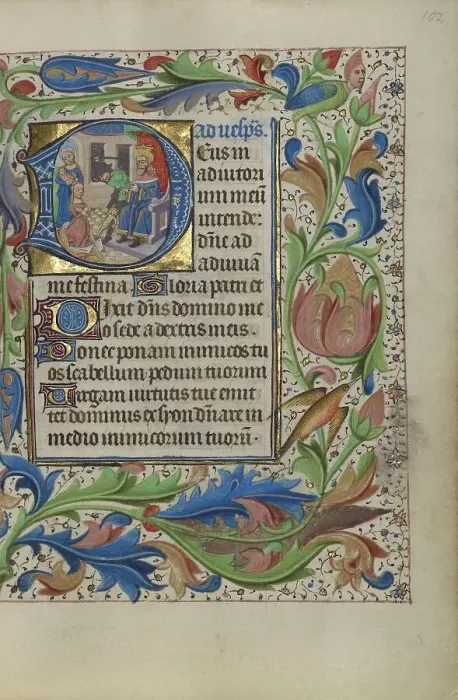 102
ad uesp̃s.
Eus in
adiutori
um meū
intende:
dñe ad
adiuuā
me festina Gloria patri et
Dixit dñs domino me
o sede a dextris meis.
Donec ponam inimicos tu
os scabellum pedum tuorum
Virgam uirtutis tue emit
tet dominus ex syon dñare in
medio inimicorum tuorū.